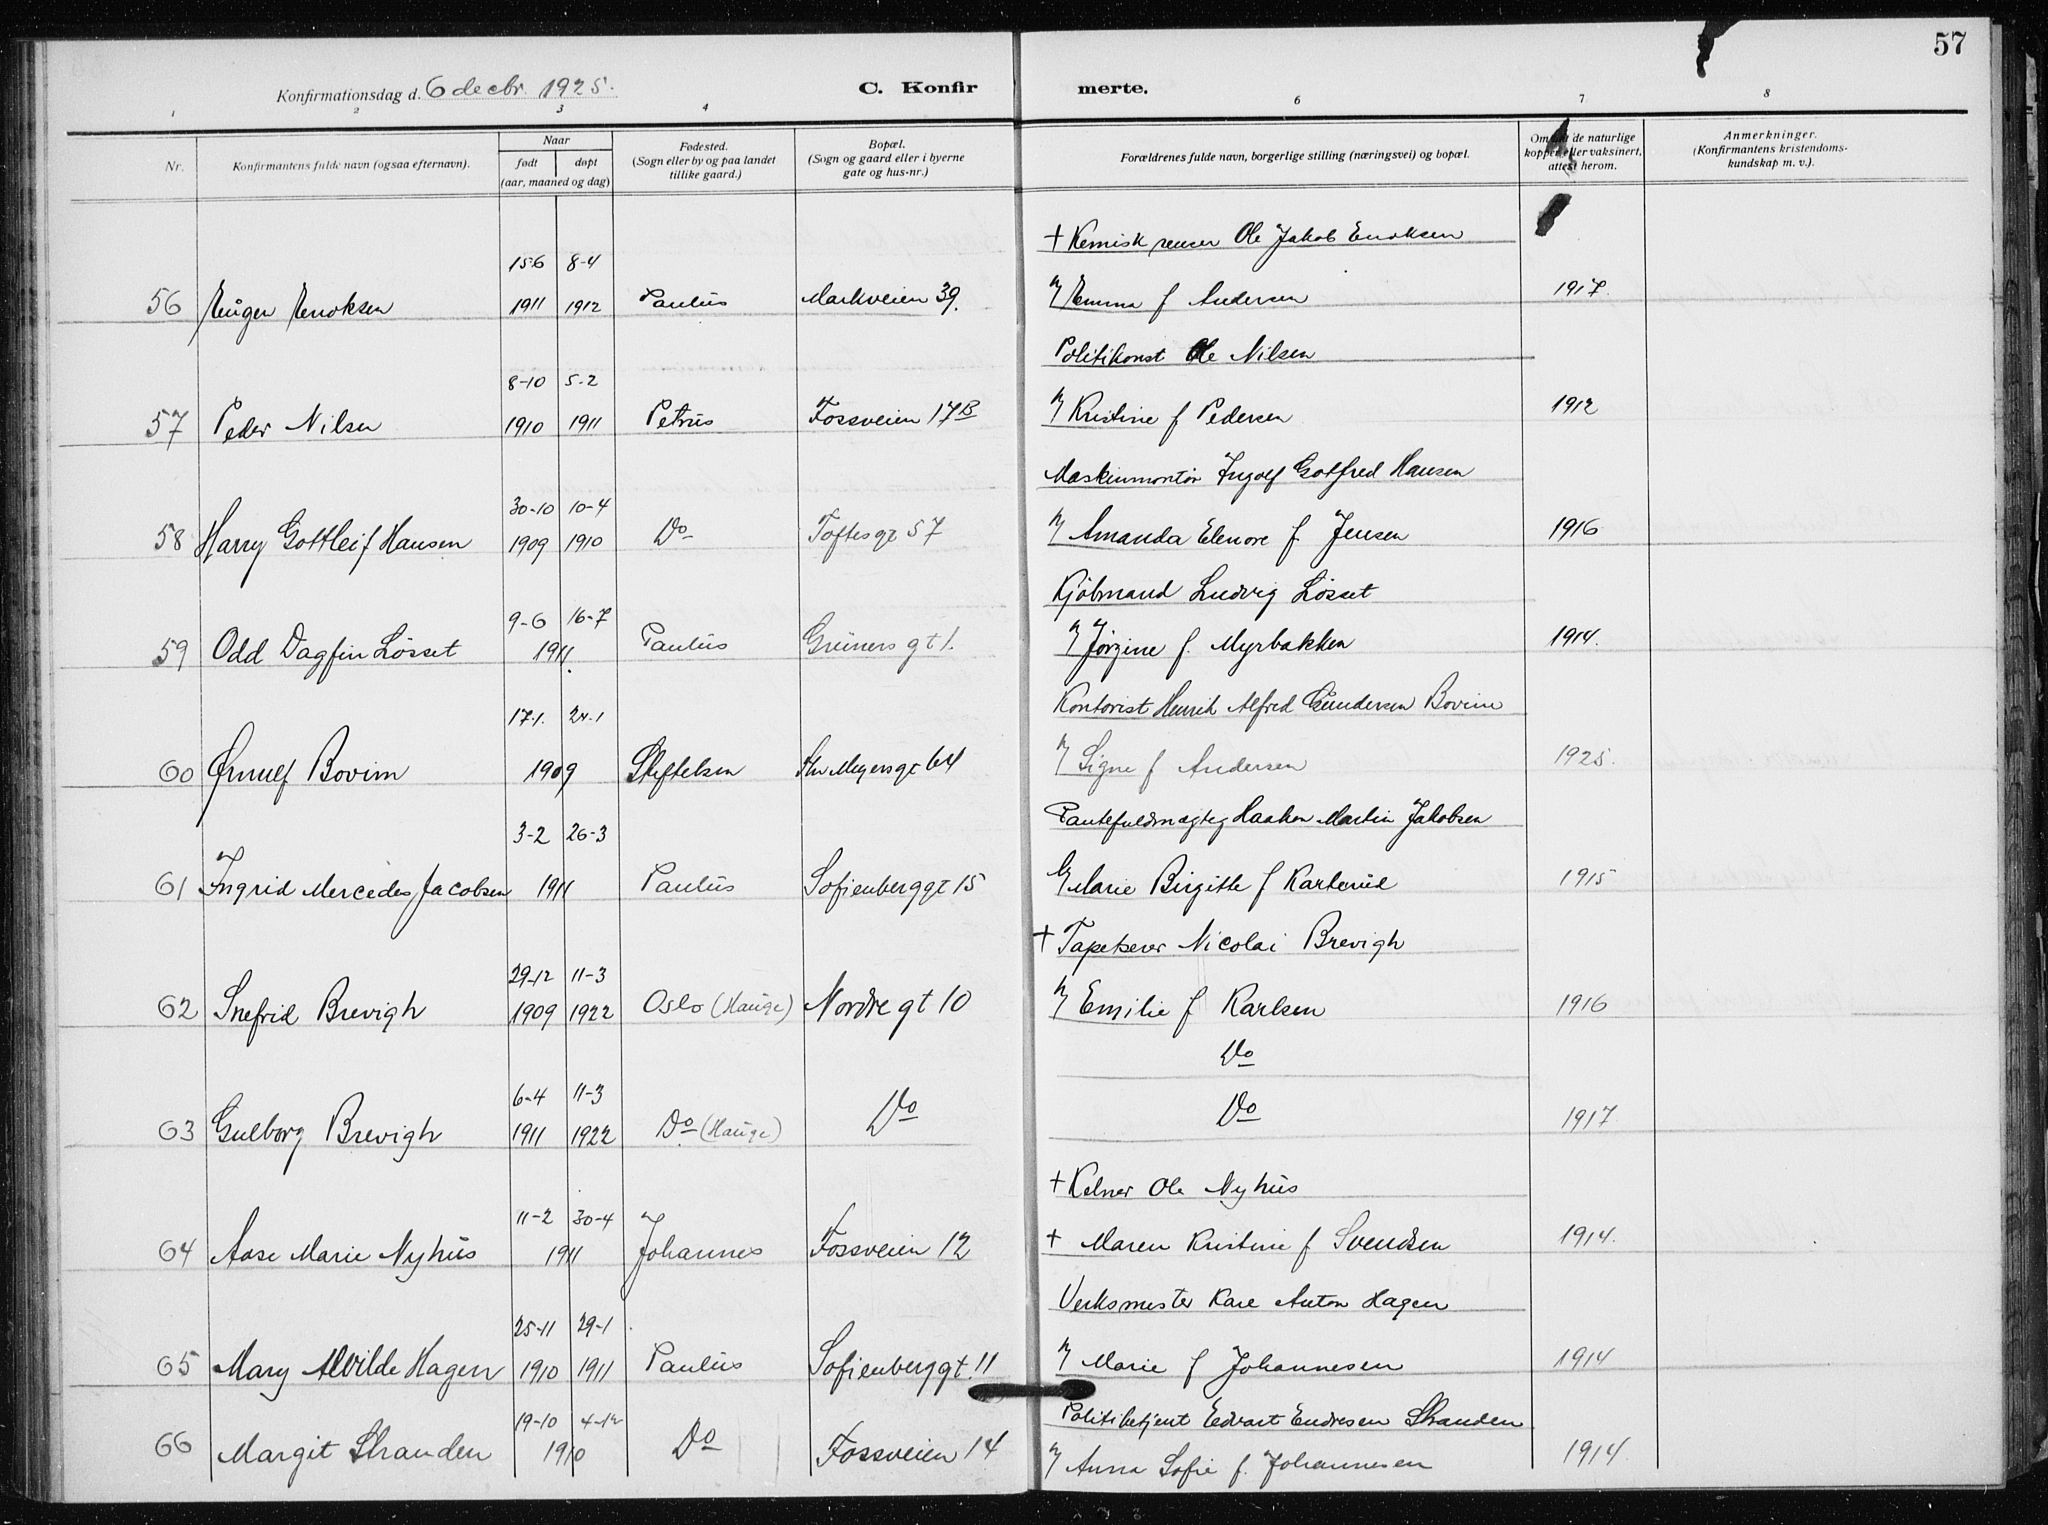 57
Konfirmationsdag d. 6 decbr. 1925.
C. Konfirmerte.
1 2 3 4 6 7 8
Nr.
Konfirmantens fulde navn (ogsaa efternavn).
Naar
født døpt
(aar, maaned og dag)
Fødested.
(Sogn eller by og paa landet
tillike gaard.)
Bopæl.
(Sogn og gaard eller i byerne
gate og hus-nr.)
Forældrenes fulde navn, borgerlige stilling (næringsvei) og bopæl.
Om hat de naturlige
kopper eller vaksinert,
attest herom.
Anmerkninger.
(Konfirmantens kristendoms-
kundskap m. v.).
+ Kemisk renser Ole Jakob Enoksen
15-6 8-4
56 Eugen Enoksen 1911 1912 Paulus Markveien 39. Emma f Andersen 1917.
Politikonst Ole Nilsen
8-10 5-2
57 Peder Nilsen 1910 1911 Petrus Fossveien 17B Kristine f Pedersen 1912
Maskinmontør Ingolf Gotfred Hansen
30-10 10-4
58 Harry Gottleif Hansen 1909 1910 Do Toftesgt 57 Amanda Elenore f Jensen 1916
Kjøbmand Ludvig Løsset
9-6 16-7
59 Odd Dagfin Løsset 1911. Paulus Grüners gt 1. Jørgine f. Myrbakken 1914.
Kontorist Henrik Alfred Gundersen Bovim
17-1. 24-1
60 Ørnulf Bovim 1909 Stiftelsen Thv Meyersgt 64 Signe f Andersen 1925.
Pantefuldmægtig Haaken Martin Jakobsen
3-2 26-3
61 Ingrid Mercedes Jacobsen 1911 Paulus Sofienberggt 15 Marie Birgitte f Karterud 1915
+ Tapetserer Nicolai Brevigh
29-12 11-3
62 Snefrid Brevigh 1909 1922 Oslo (Hauge) Nordre gt 10 Emilie f Karlsen 1916
Do
6-4 11-3
63 Gulborg Brevigh 1911 1922 Do (Hauge) Do Do 1917
+ Kelner Ole Nyhus
11-2 30-4
64 Aase Marie Nyhus 1911 Johannes Fossveien 12 + Maren Kristine f Svendsen 1914.
Verksmester Kare Anton Hagen
25-11 29-1
65 Mary Alvilde Hagen 1910 1911 Paulus Sofienberggt. 11 Marie f Johannesen 1914
Politibetjent Edvart Endresen Stranden
19-10 4-12
66 Margit Stranden 1910 Do Fossveien 14 Anna Sofie f. Johannesen 1914